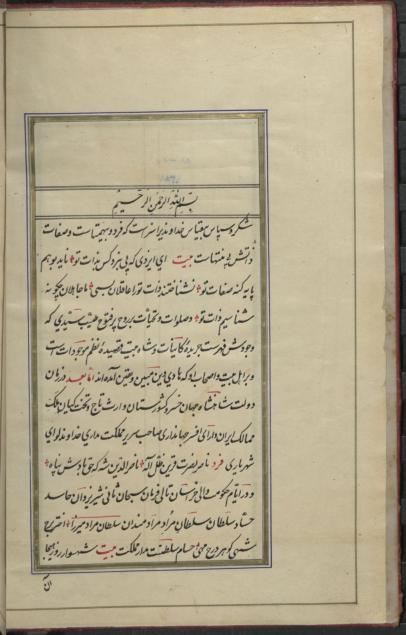 بسم الله الرحمن الرحیم
شکر و سپاس بیقیاس خداوندیرا سزاست که فرد و بیهمتاست و صفات
ذاتش بی منتهاست بیت ای ایزدی که پی نبرد کس بذات تو ناید بوهم
پایه کنه صفات تو نشناختند ذات تو را عاقلان بسی ما جاهلان چگونه
شناسیم ذات تو و صلوات و تحیات بر روح پر فتوح طیب سیدی که
وجودش فهرست جریده کاینات و شاه بیت قصیده نظم موجودات است
و بر اهل بیت و اصحاب او که هادی دین مبین و متین آمده اند اما بعد در زمان
دولت شاهنشاه جهان خسرو کشورستان وارث تاج و تخت کیان ملک
ممالک ایران دارای افسر جهانداری صاحب سریر مملکت مداری خداوند لوای
شهریاری فرد ناصر نصرت قرین ظل اله ناصرالدین شه که حق بادش پناه
و در ایام حکومت والی خراسان تالی قرمان سبحان ثانی شیر یزدان حاسد
سلطان سلطان مراد مراد مندان سلطان مراد میرزا اختر برج
شهی گوهر درج مهی حسام سلطنت مدار مملکت بیت شهسوار روز هیجا